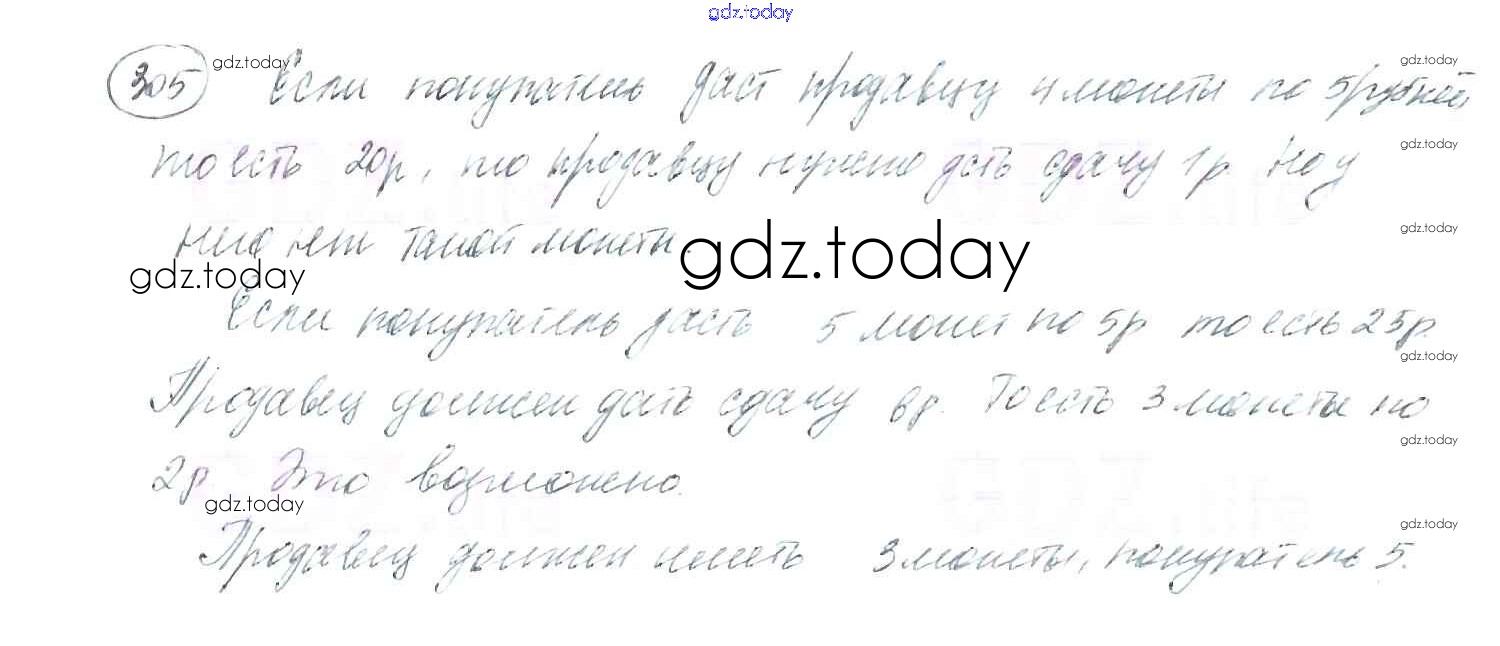 gdz.today
305 gdz.today Если покупатель даст продавцу 4 монеты по 5 рублей gdz.today
то есть 20р, то продавцу нужно дать сдачу 1р. Но у gdz.today
него нет такой монеты. gdz.today
gdz.today gdz.today
Если покупатель дасть 5 монет по 5р то есть 25р.
gdz.today
Продавец должен дать сдачу 6р. То есть 3 монеты по
gdz.today
2р. Это возможно.
gdz.today
gdz.today
Продавец должен иметь 3 монеты, покупатель 5.